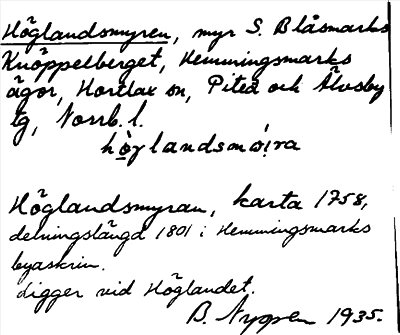 Höglandsmyren, myr S. Blåsmarks
Knöppelberget, Hemmingsmarks
ägor, Hortlax sn, Piteå och Älvsby
tg, Norrb. l.
hö̀glandsmö́!ra
Höglandsmyran, karta 1758,
delningslängd 1801 i Hemmingsmarks
byaskrin.
ligger vid Höglandet.
B. Nygren 1935.